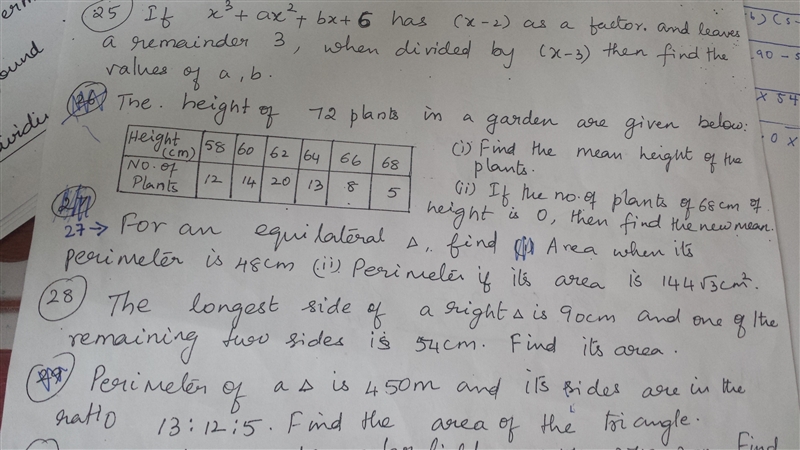 erm
ound
ividu
b) (s-
90 - 5
x 54
0 x
25 If x³ + ax² + bx + 6 has (x-2) as a factor. and leaves
a remainder 3, when divided by (x-3) then find the
values of a, b.
The height of 72 plants in a garden are given below:
Height (cm) 58 60 62 64 66 68
No. of Plants 12 14 20 13 8 5
(i) Find the mean height of the
plants.
(ii) If the no. of plants of 68 cm of
height is 0, then find the new mean.
27 → For an equilateral Δ, find (i) Area when its
perimeter is 48cm (ii) Perimeter if its area is 144√3cm².
28 The longest side of a right Δ is 90cm and one of the
remaining two sides is 54cm. Find its area.
Perimeter of a Δ is 450m and its sides are in the
ratio 13:12:5. Find the area of the triangle.
Find